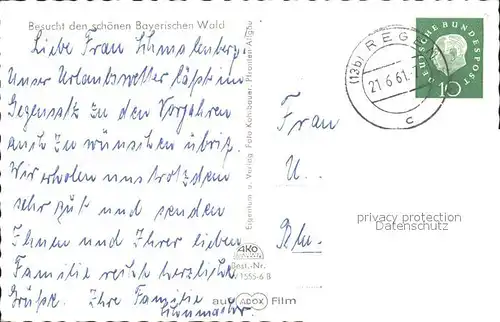 Besucht den schönen Bayerischen Wald
Liebe Frau Schmalenberg,
Unser Urlaubswetter läßt im
Gegensatz zu den Vorjahren
auch zu wünschen übrig.
Wir erholen uns trotzdem
sehr gut und senden
Ihnen und Ihrer lieben
Familie recht herzliche
Grüße. Ihre Familie
Eigentum u. Verlag Foto Kohlbauer, Pfronten-Allgäu
AKO
Best.-Nr.
1555-6 B
auf ADOX Film
(13b) REG
21.6.61.
c
DEUTSCHE BUNDESPOST
10
Frau
U.
privacy protection
Datenschutz